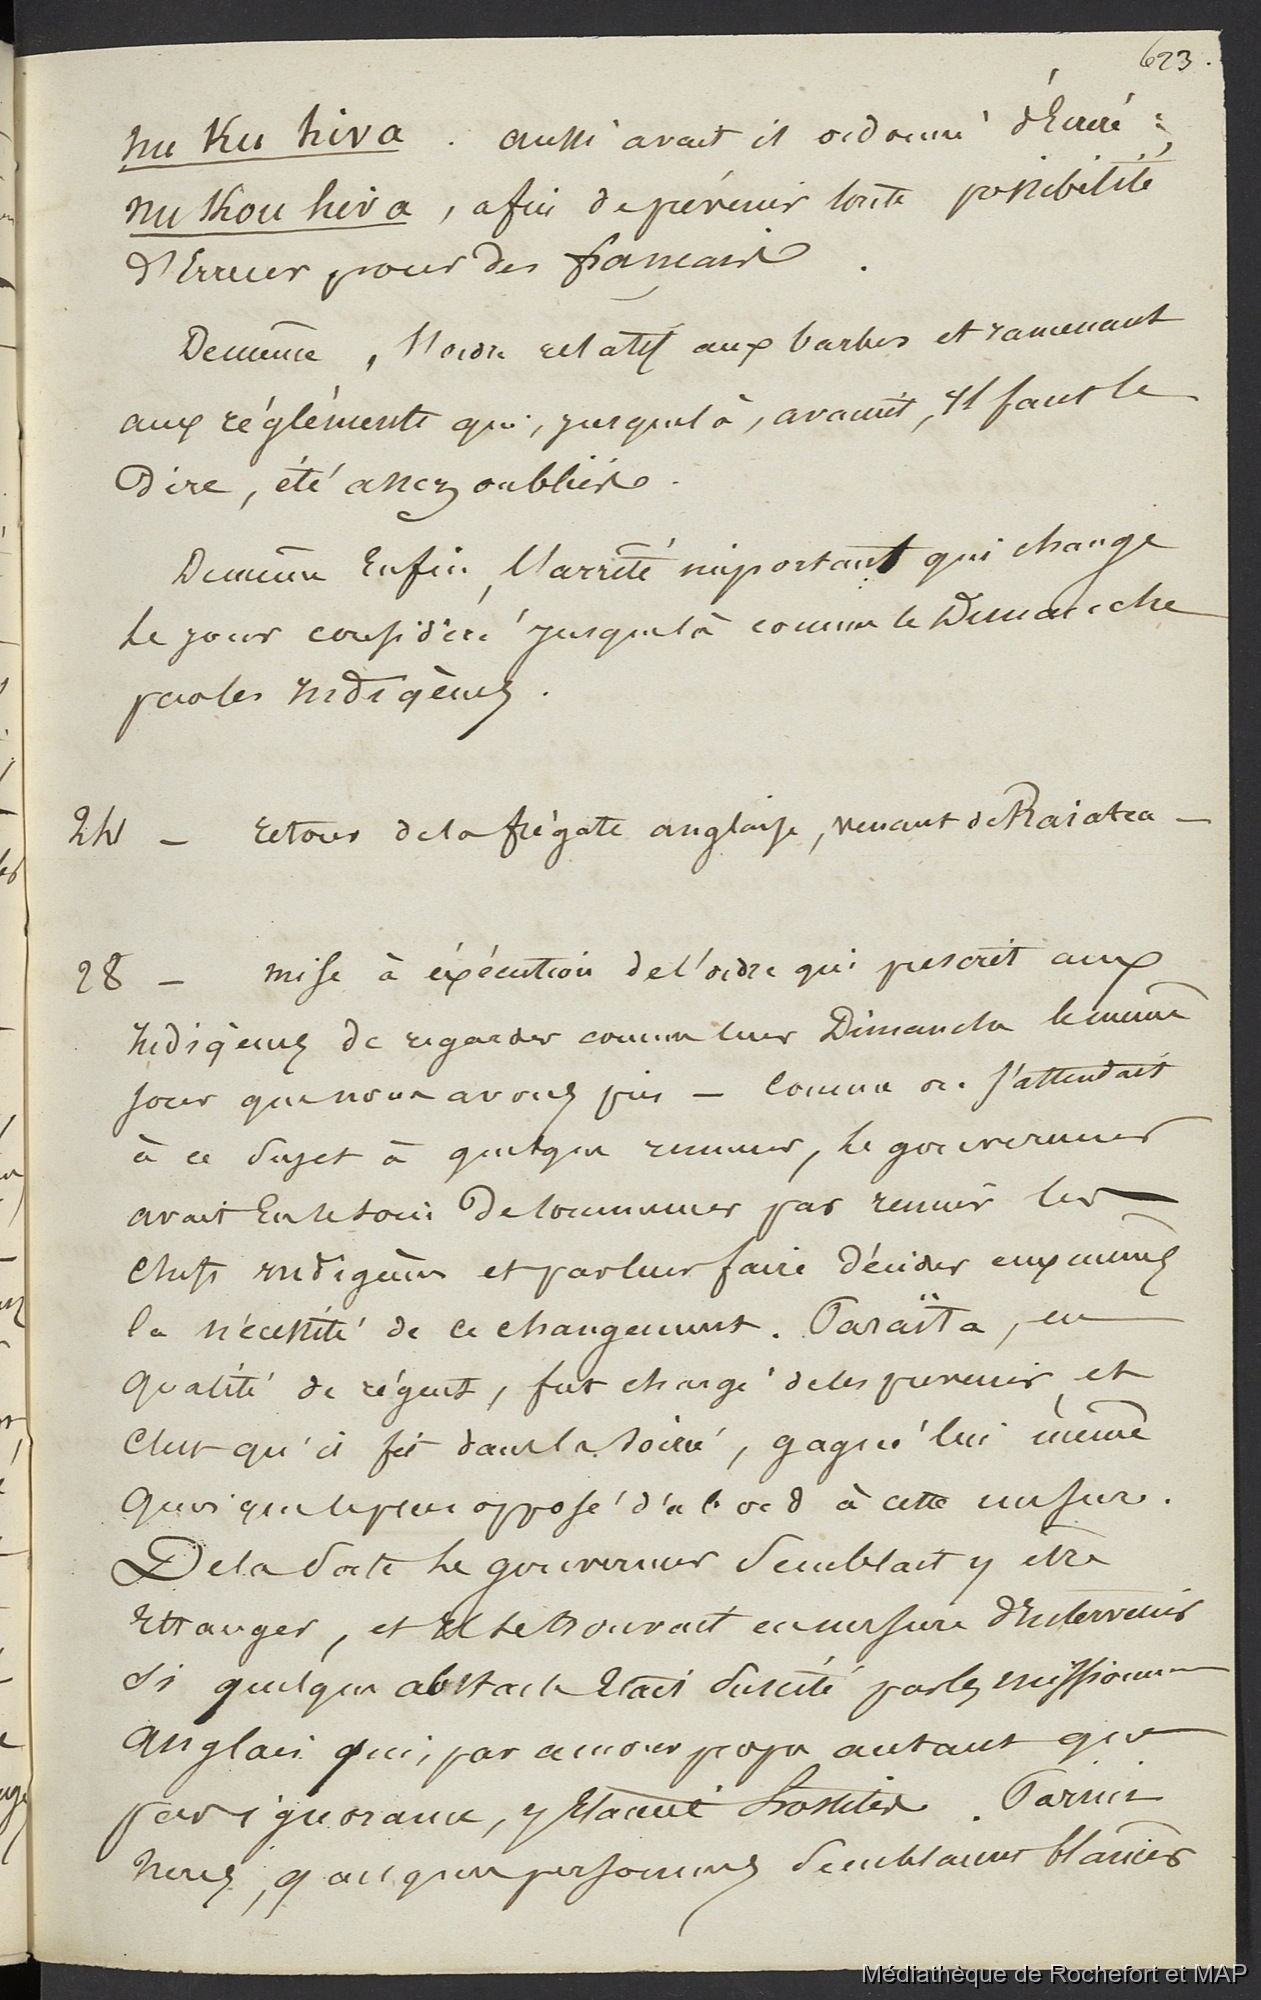 623.
nu Ku hiva . aussi avait il ordonné d'Ecrire :
nu Kou hiva, afin de prévenir toute possibilité
d'Erreur pour des français .
Demême, l'ordre relatif aux barbes et ramenant
aux réglements qui, jusquelà, avaient, il faut le
Dire, été assez oubliés .
Demême Enfin, l'arrêté important qui change
le jour considéré jusquelà comme le Dimanche
par les indigènes .
24 — retour de la frégate anglaise, venant de Raiatea —
28 — mise à éxécution de l'ordre qui prescrit aux
indigènes de regarder comme leur Dimanche le même
jour que nous avons pris — Comme on s'attendait
à ce sujet à quelque rumeur, le gouverneur
avait Eu le soin De commencer par reunir les
chefs indigènes et par leur faire décider eux mêmes
la nécessité de ce changement. Paraïta, en
qualité de régent, fut chargé de les prevenir, et
C'est qu'il fit dans la soirée, gagné lui même
quoique le peu opposé d'abord à cette mesure.
De la sorte le gouverneur semblait y être
Etranger, et il se trouvait en mesure d'intervenir
si quelque obstacle Etait suscité par les missionn
anglais qui, par amour propre autant que
par ignorance, y Etaient hostiles . Parmi
nous, quelques personnes semblaient blâmer
Médiathèque de Rochefort et MAP